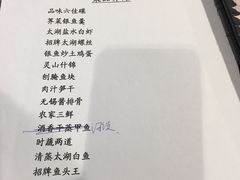 品味六佳碟
荠菜银鱼羹
太湖盐水白虾
招牌太湖螺丝
银鱼炒土鸡蛋
灵山什锦
刨腌鱼块
肉汁笋干
无锡酱排骨
农家三鲜
酒香干蒸甲鱼
时蔬两道
清蒸太湖白鱼
招牌鱼头王